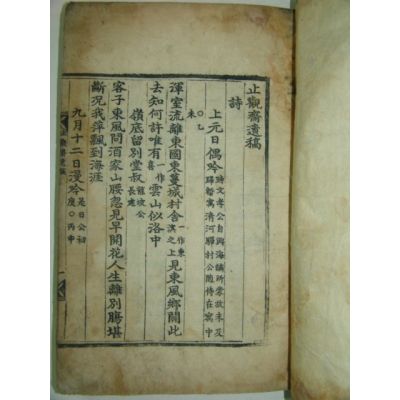 止觀齋遺稿
詩
上元日偶吟 時文孝公自興海謫所蒙放未及歸暫寓清河縣村公隨侍在寓中
○乙未
渾室流離東國東薑城村舍 一作東溟之上 見東風鄉關此
去知何許唯有 一作喜 雲山似洛中
嶺底留別堂叔 龍坡公 長老
客子東風問酒家山腰忽見早開花人生離別腸堪
斷況我萍飄到海涯
九月十二日漫吟 是日公初度○丙申